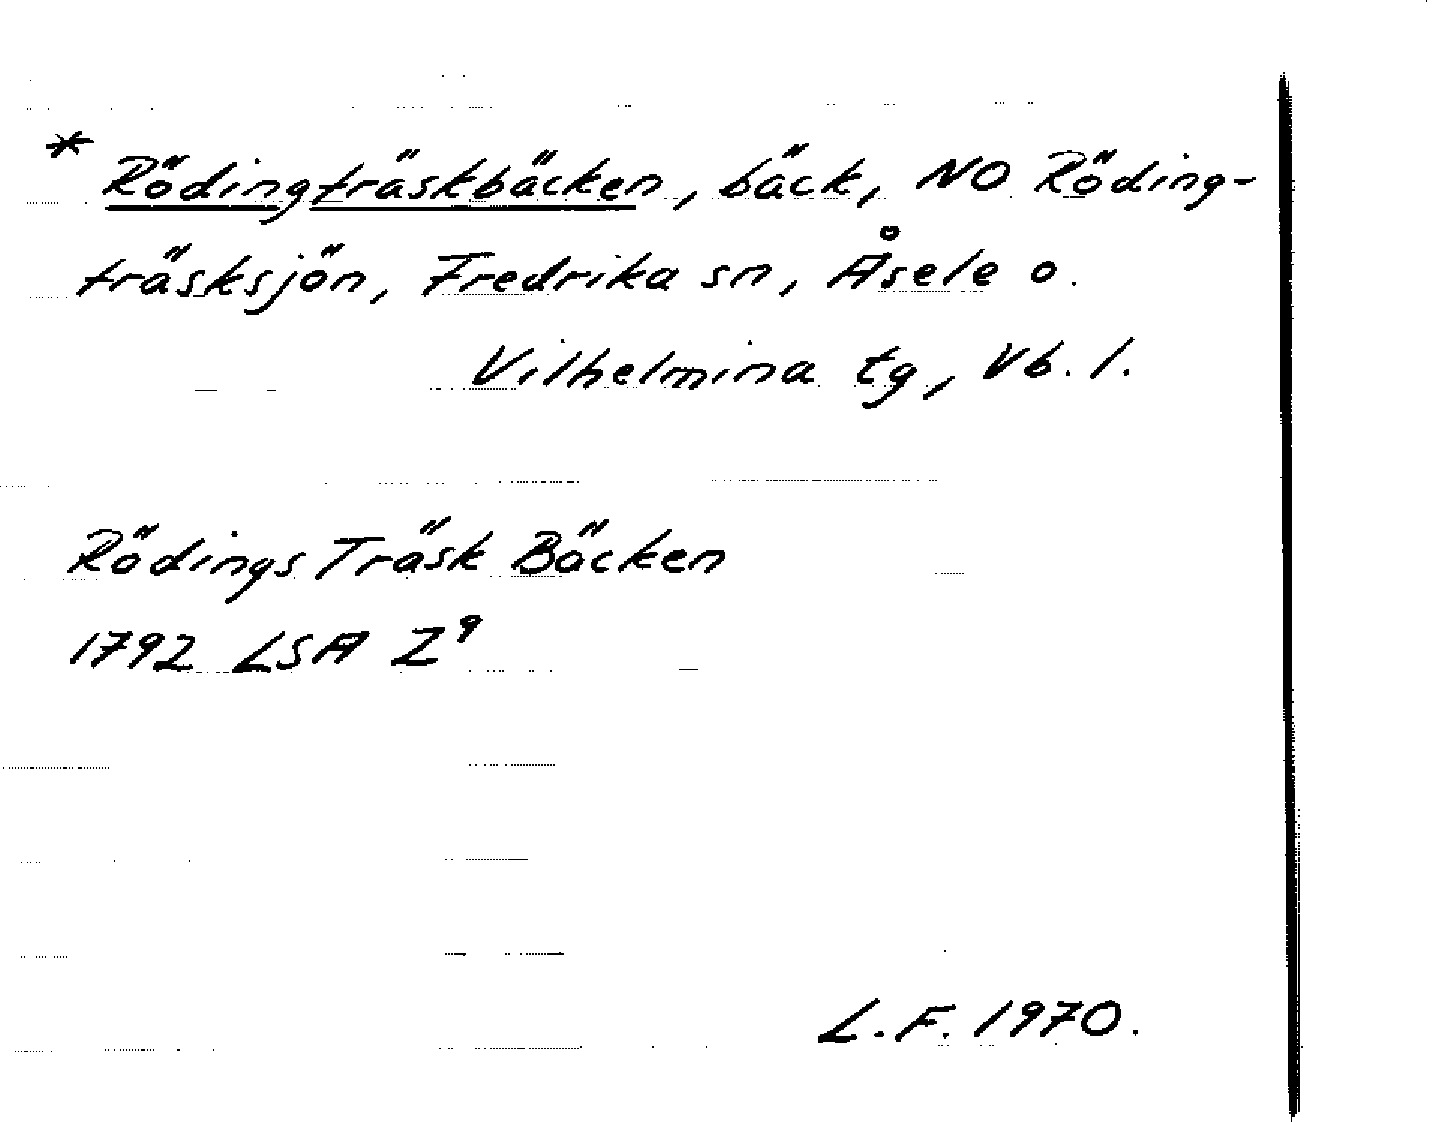 * Rödingträskbäcken, bäck, NO Röding-
träsksjön, Fredrika sn, Åsele o.
Vilhelmina tg, Vb. l.
Rödings Träsk Bäcken
1792 LSA Z⁹
L.F. 1970.